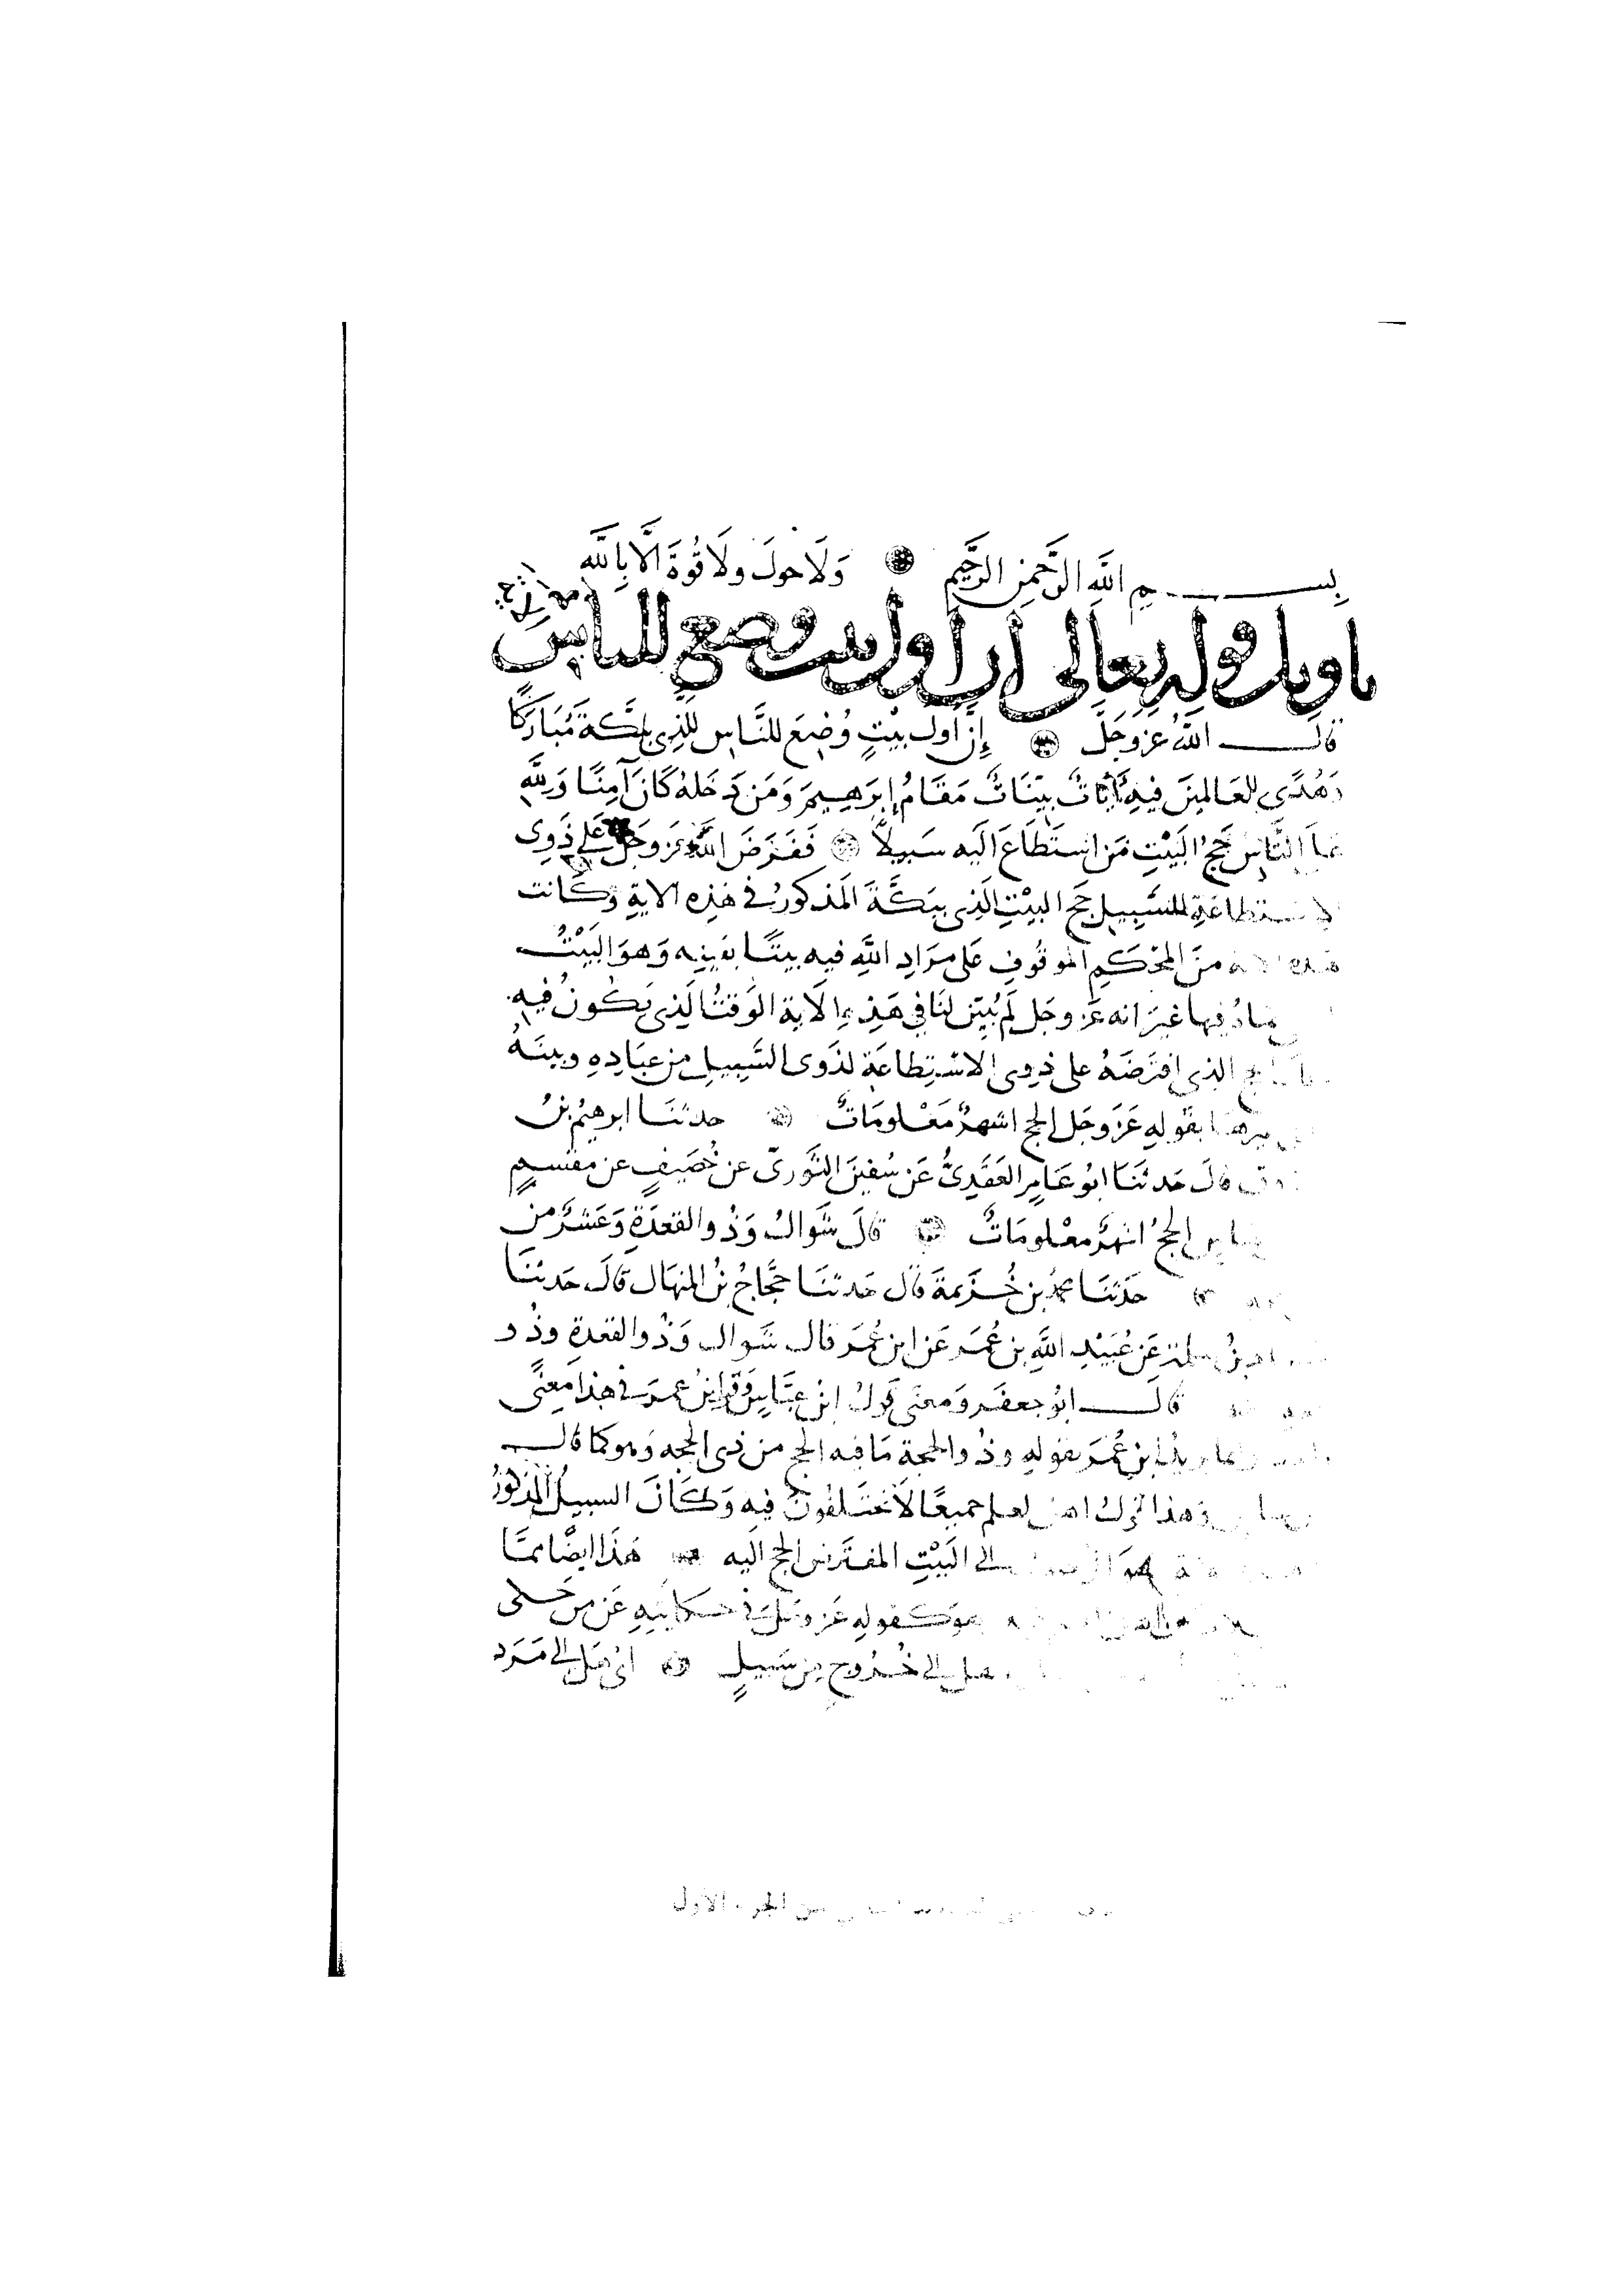 بسم الله الرَّحمن الرَّحيم وَلَا حولَ ولَا قُوةَ الَّا بِاللَّه
تاويل قوله تعالى ان اول بيت وضع للناس
قال اللَّهُ عَزوجَلَّ إِنَّ اول بيْتٍ وُضِعَ للنَّاسِ للَّذِى بِبَكَّةَ مُبَارَكًا
وَهُدًى للعَالمينَ فيهِ آيَاتٌ بيّنَاتٌ مَقَامُ إبرَهِيمَ وَمَن دَخَلهُ كَانَ آمِنًا وَلِلَّهِ
عَلَى النَّاسِ حجُّ البَيْتِ مَن اسْتَطَاعَ الَيه سَبِيلاً فَفَرَضَ اللَّهُ عَزوَجَلَّ عَلى ذَوِى
الاستطاعَةِ للسَّبِيلِ حَج البيْتِ الَذِى بِبَكَّةَ المَذكورُ فى هَذِه الايةِ وَكَانت
هذه الاية منَ المُحْكَمِ الموقُوفِ عَلى مرَادِ اللَّهِ فيه بيتًا بعَينِه وَهوَ البَيْتُ
فيها غيرَ انه عَزوجَل لَم يُبيّن لنَا في هَذِهِ الَاية الوَقتُ الَذِى يَكُونُ فيهِ
الحج الذِى افترَضَهُ على ذوِى الاسْتِطاعَةِ لذَوى السَّبِيلِ من عبَادِهِ وبينَهُ
بقَولِهِ عَزَوجَل الحج اشهرٌ مَعْلومَاتٌ حدثنَا ابرهيمُ بنُ
قالَ حَدثنَا ابُو عَامِرٍ العَقَدِىُّ عَن سُفينَ الثَّورىّ عن خُصَيفٍ عن مقسمٍ
الحجُّ اشهرٌ معْلومَاتٌ قالَ شَوَالٌ وَذُو القعدَةِ وَعَشرٌ من
حَدَّثنَا محمدُ بن خُزيمةَ قال حَدثنَا حَجَّاجُ بنُ المنهَال قالَ حَدثنَا
بنُ سلمة عَن عُبَيْدِ اللَّهِ بن عُمَر عَن ابن عُمَر قال شوال وَذُو القعدةِ وذُو
قال ابُو جعفَر وَمعنَى قولُ ابنُ عبَّاسٍ وَقولُ ابنُ عمرَ فى هذا معنًى
ابنِ عُمَرَ بقولهِ وذُو الحجة مَا فيه الحج من ذى الحجه وَهو كما قال
وَهذا قولُ اهل العلم جميعًا لَا يختَلفُونَ فيه وَكَانَ السبيلُ المذكورُ
الى البَيْتِ المفترض الحج اليه هَذا ايضًا ممَّا
هوَ كقولهِ عَزوجَل فى حكايتِهِ عَن مَن حَكى
هل الى خُروجٍ من سَبيلٍ اىْ هَل الى مَرَد
من الجزء الاول